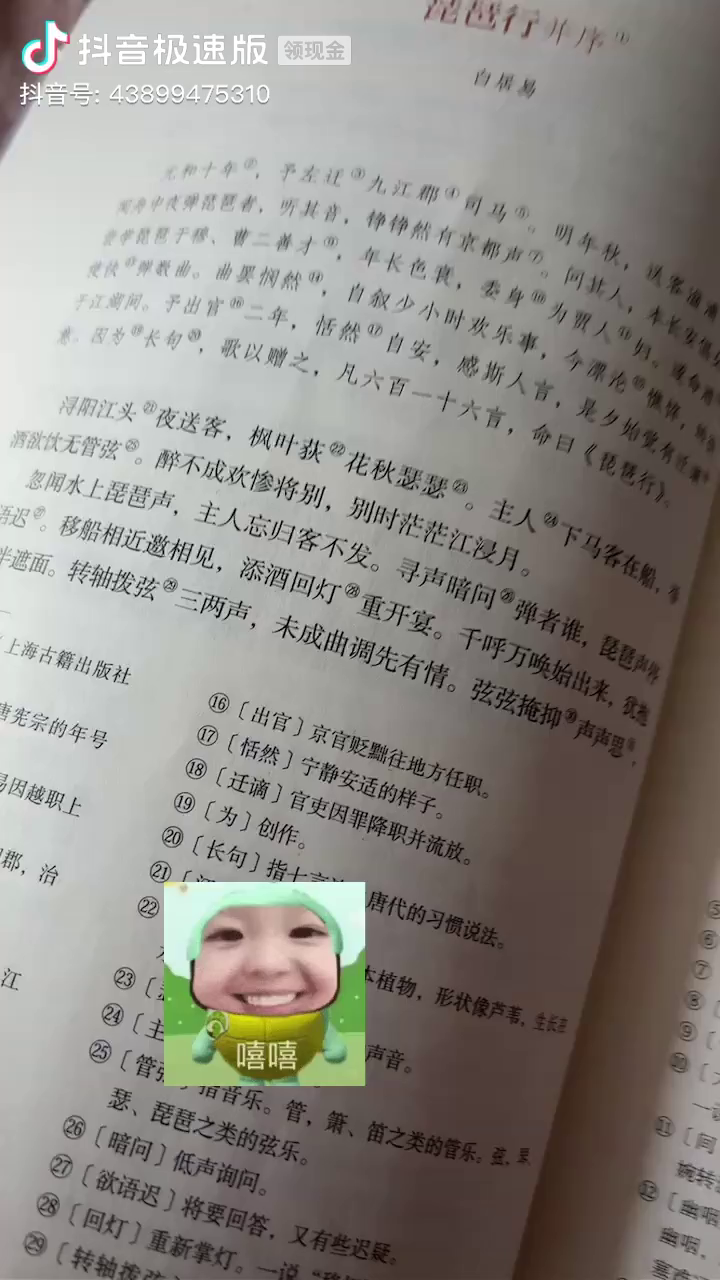 抖音极速版 领现金
抖音号: 43899475310
琵琶行并序①
白居易
元和十年②，予左迁③九江郡④司马⑤。明年秋，送客湓浦
闻舟中夜弹琵琶者，听其音，铮铮然有京都声⑦。问其人，本长安倡
尝学琵琶于穆、曹二善才⑨，年长色衰，委身⑩为贾人⑪妇。遂命酒
使快⑬弹数曲。曲罢悯然⑭，自叙少小时欢乐事，今漂沦⑮憔悴，转徙
于江湖间。予出官⑯二年，恬然⑰自安，感斯人言，是夕始觉有迁谪⑱
意。因为⑲长句⑳，歌以赠之，凡六百一十六言，命曰《琵琶行》。
浔阳江头㉑夜送客，枫叶荻㉒花秋瑟瑟㉓。主人㉔下马客在船，举
酒欲饮无管弦㉕。醉不成欢惨将别，别时茫茫江浸月。
忽闻水上琵琶声，主人忘归客不发。寻声暗问㉖弹者谁，琵琶声停
语迟㉗。移船相近邀相见，添酒回灯㉘重开宴。千呼万唤始出来，犹抱
半遮面。转轴拨弦㉙三两声，未成曲调先有情。弦弦掩抑㉚声声思㉛，
上海古籍出版社
唐宪宗的年号
易因越职上
郡，治
江
⑯〔出官〕京官贬黜往地方任职。
⑰〔恬然〕宁静安适的样子。
⑱〔迁谪〕官吏因罪降职并流放。
⑲〔为〕创作。
⑳〔长句〕指七言 唐代的习惯说法。
㉑
㉒
本植物，形状像芦苇，生长在
㉓
㉔〔主 声音。
㉕〔管弦〕指音乐。管，箫、笛之类的管乐。弦，琴、
瑟、琵琶之类的弦乐。
㉖〔暗问〕低声询问。
㉗〔欲语迟〕将要回答，又有些迟疑。
㉘〔回灯〕重新掌灯。一说“移
㉙〔转轴拨弦
嘻嘻
⑤
⑥
⑦
⑧
⑨
⑩
一说
⑪〔间
婉转
⑫〔幽咽
幽咽，